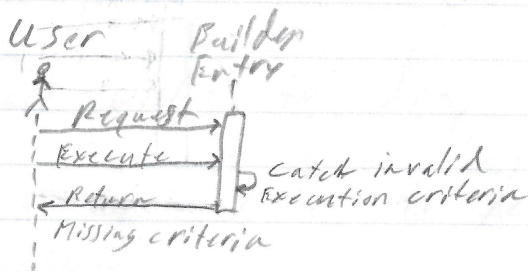 User
Builder
Entry
Request
Execute
Catch invalid
Execution criteria
Return
Missing criteria